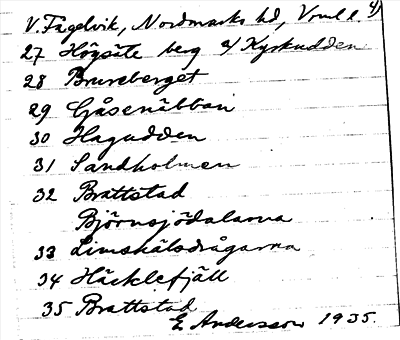 V. Fågelvik, Nordmarks hd, Vrml l. 4)
27 Högsäte berg a/ Kyrkudden
28 Bureberget
29 Gåsenäbban
30 Hagudden
31 Sandholmen
32 Brattstad
Björnsjödalarna
33 Limskålsdrågarna
34 Häcklefjäll
35 Brattstad
E Andersson 1935.